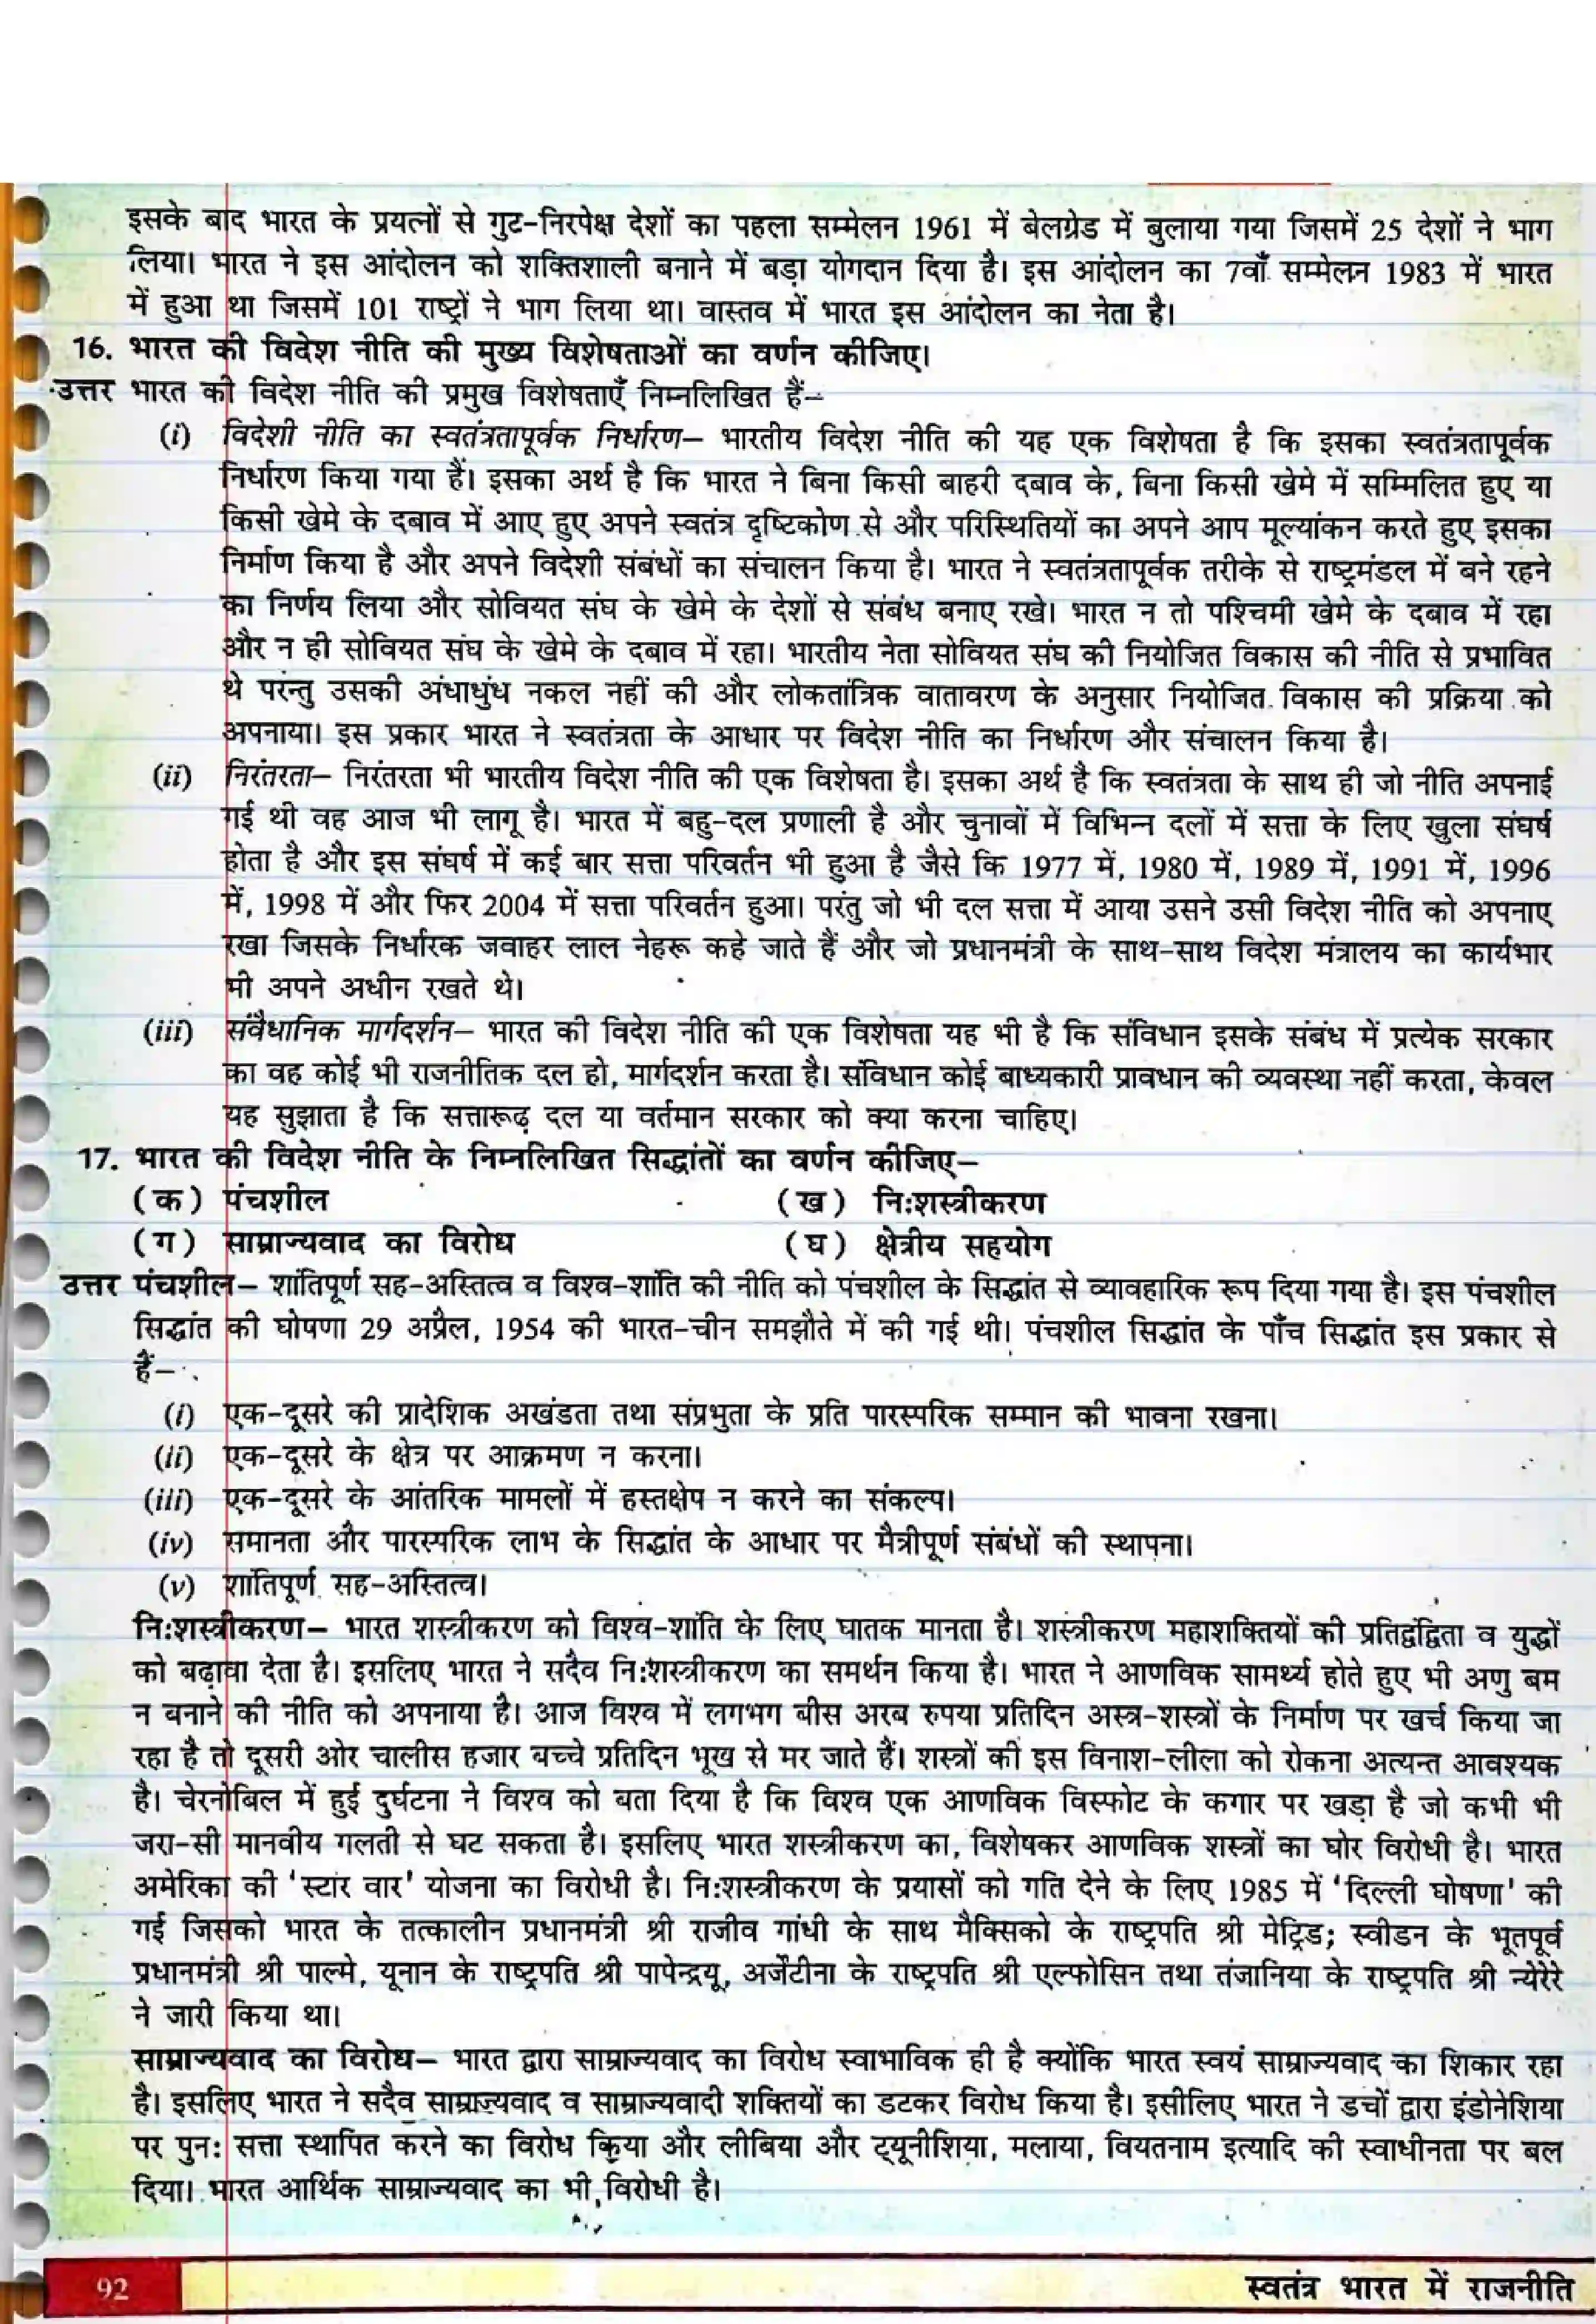 इसके बाद भारत के प्रयत्नों से गुट-निरपेक्ष देशों का पहला सम्मेलन 1961 में बेलग्रेड में बुलाया गया जिसमें 25 देशों ने भाग
लिया। भारत ने इस आंदोलन को शक्तिशाली बनाने में बड़ा योगदान दिया है। इस आंदोलन का 7वाँ सम्मेलन 1983 में भारत
में हुआ था जिसमें 101 राष्ट्रों ने भाग लिया था। वास्तव में भारत इस आंदोलन का नेता है।
16. भारत की विदेश नीति की मुख्य विशेषताओं का वर्णन कीजिए।
उत्तर भारत की विदेश नीति की प्रमुख विशेषताएँ निम्नलिखित हैं–
(i) विदेशी नीति का स्वतंत्रतापूर्वक निर्धारण– भारतीय विदेश नीति की यह एक विशेषता है कि इसका स्वतंत्रतापूर्वक
निर्धारण किया गया हैं। इसका अर्थ है कि भारत ने बिना किसी बाहरी दबाव के, बिना किसी खेमे में सम्मिलित हुए या
किसी खेमे के दबाव में आए हुए अपने स्वतंत्र दृष्टिकोण से और परिस्थितियों का अपने आप मूल्यांकन करते हुए इसका
निर्माण किया है और अपने विदेशी संबंधों का संचालन किया है। भारत ने स्वतंत्रतापूर्वक तरीके से राष्ट्रमंडल में बने रहने
का निर्णय लिया और सोवियत संघ के खेमे के देशों से संबंध बनाए रखे। भारत न तो पश्चिमी खेमे के दबाव में रहा
और न ही सोवियत संघ के खेमे के दबाव में रहा। भारतीय नेता सोवियत संघ की नियोजित विकास की नीति से प्रभावित
थे परंन्तु उसकी अंधाधुंध नकल नहीं की और लोकतांत्रिक वातावरण के अनुसार नियोजित विकास की प्रक्रिया को
अपनाया। इस प्रकार भारत ने स्वतंत्रता के आधार पर विदेश नीति का निर्धारण और संचालन किया है।
(ii) निरंतरता– निरंतरता भी भारतीय विदेश नीति की एक विशेषता है। इसका अर्थ है कि स्वतंत्रता के साथ ही जो नीति अपनाई
गई थी वह आज भी लागू है। भारत में बहु-दल प्रणाली है और चुनावों में विभिन्न दलों में सत्ता के लिए खुला संघर्ष
होता है और इस संघर्ष में कई बार सत्ता परिवर्तन भी हुआ है जैसे कि 1977 में, 1980 में, 1989 में, 1991 में, 1996
में, 1998 में और फिर 2004 में सत्ता परिवर्तन हुआ। परंतु जो भी दल सत्ता में आया उसने उसी विदेश नीति को अपनाए
रखा जिसके निर्धारक जवाहर लाल नेहरू कहे जाते हैं और जो प्रधानमंत्री के साथ-साथ विदेश मंत्रालय का कार्यभार
भी अपने अधीन रखते थे।
(iii) संवैधानिक मार्गदर्शन– भारत की विदेश नीति की एक विशेषता यह भी है कि संविधान इसके संबंध में प्रत्येक सरकार
का वह कोई भी राजनीतिक दल हो, मार्गदर्शन करता है। संविधान कोई बाध्यकारी प्रावधान की व्यवस्था नहीं करता, केवल
यह सुझाता है कि सत्तारूढ़ दल या वर्तमान सरकार को क्या करना चाहिए।
17. भारत की विदेश नीति के निम्नलिखित सिद्धांतों का वर्णन कीजिए–
(क) पंचशील (ख) नि:शस्त्रीकरण
(ग) साम्राज्यवाद का विरोध (घ) क्षेत्रीय सहयोग
उत्तर पंचशील– शांतिपूर्ण सह-अस्तित्व व विश्व-शांति की नीति को पंचशील के सिद्धांत से व्यावहारिक रूप दिया गया है। इस पंचशील
सिद्धांत की घोषणा 29 अप्रैल, 1954 की भारत-चीन समझौते में की गई थी। पंचशील सिद्धांत के पाँच सिद्धांत इस प्रकार से
हैं–
(i) एक-दूसरे की प्रादेशिक अखंडता तथा संप्रभुता के प्रति पारस्परिक सम्मान की भावना रखना।
(ii) एक-दूसरे के क्षेत्र पर आक्रमण न करना।
(iii) एक-दूसरे के आंतरिक मामलों में हस्तक्षेप न करने का संकल्प।
(iv) समानता और पारस्परिक लाभ के सिद्धांत के आधार पर मैत्रीपूर्ण संबंधों की स्थापना।
(v) शांतिपूर्ण सह-अस्तित्व।
नि:शस्त्रीकरण– भारत शस्त्रीकरण को विश्व-शांति के लिए घातक मानता है। शस्त्रीकरण महाशक्तियों की प्रतिद्वंद्विता व युद्धों
को बढ़ावा देता है। इसलिए भारत ने सदैव नि:शस्त्रीकरण का समर्थन किया है। भारत ने आणविक सामर्थ्य होते हुए भी अणु बम
न बनाने की नीति को अपनाया है। आज विश्व में लगभग बीस अरब रुपया प्रतिदिन अस्त्र-शस्त्रों के निर्माण पर खर्च किया जा
रहा है तो दूसरी ओर चालीस हजार बच्चे प्रतिदिन भूख से मर जाते हैं। शस्त्रों की इस विनाश-लीला को रोकना अत्यन्त आवश्यक
है। चेरनोबिल में हुई दुर्घटना ने विश्व को बता दिया है कि विश्व एक आणविक विस्फोट के कगार पर खड़ा है जो कभी भी
जरा-सी मानवीय गलती से घट सकता है। इसलिए भारत शस्त्रीकरण का, विशेषकर आणविक शस्त्रों का घोर विरोधी है। भारत
अमेरिका की ‘स्टार वार’ योजना का विरोधी है। नि:शस्त्रीकरण के प्रयासों को गति देने के लिए 1985 में ‘दिल्ली घोषणा’ की
गई जिसको भारत के तत्कालीन प्रधानमंत्री श्री राजीव गांधी के साथ मैक्सिको के राष्ट्रपति श्री मेट्रिड; स्वीडन के भूतपूर्व
प्रधानमंत्री श्री पाल्मे, यूनान के राष्ट्रपति श्री पापेन्द्रयू, अर्जेंटीना के राष्ट्रपति श्री एल्फोसिन तथा तंजानिया के राष्ट्रपति श्री न्येरेरे
ने जारी किया था।
साम्राज्यवाद का विरोध– भारत द्वारा साम्राज्यवाद का विरोध स्वाभाविक ही है क्योंकि भारत स्वयं साम्राज्यवाद का शिकार रहा
है। इसलिए भारत ने सदैव साम्राज्यवाद व साम्राज्यवादी शक्तियों का डटकर विरोध किया है। इसीलिए भारत ने डचों द्वारा इंडोनेशिया
पर पुन: सत्ता स्थापित करने का विरोध किया और लीबिया और ट्यूनीशिया, मलाया, वियतनाम इत्यादि की स्वाधीनता पर बल
दिया। भारत आर्थिक साम्राज्यवाद का भी विरोधी है।
92 स्वतंत्र भारत में राजनीति